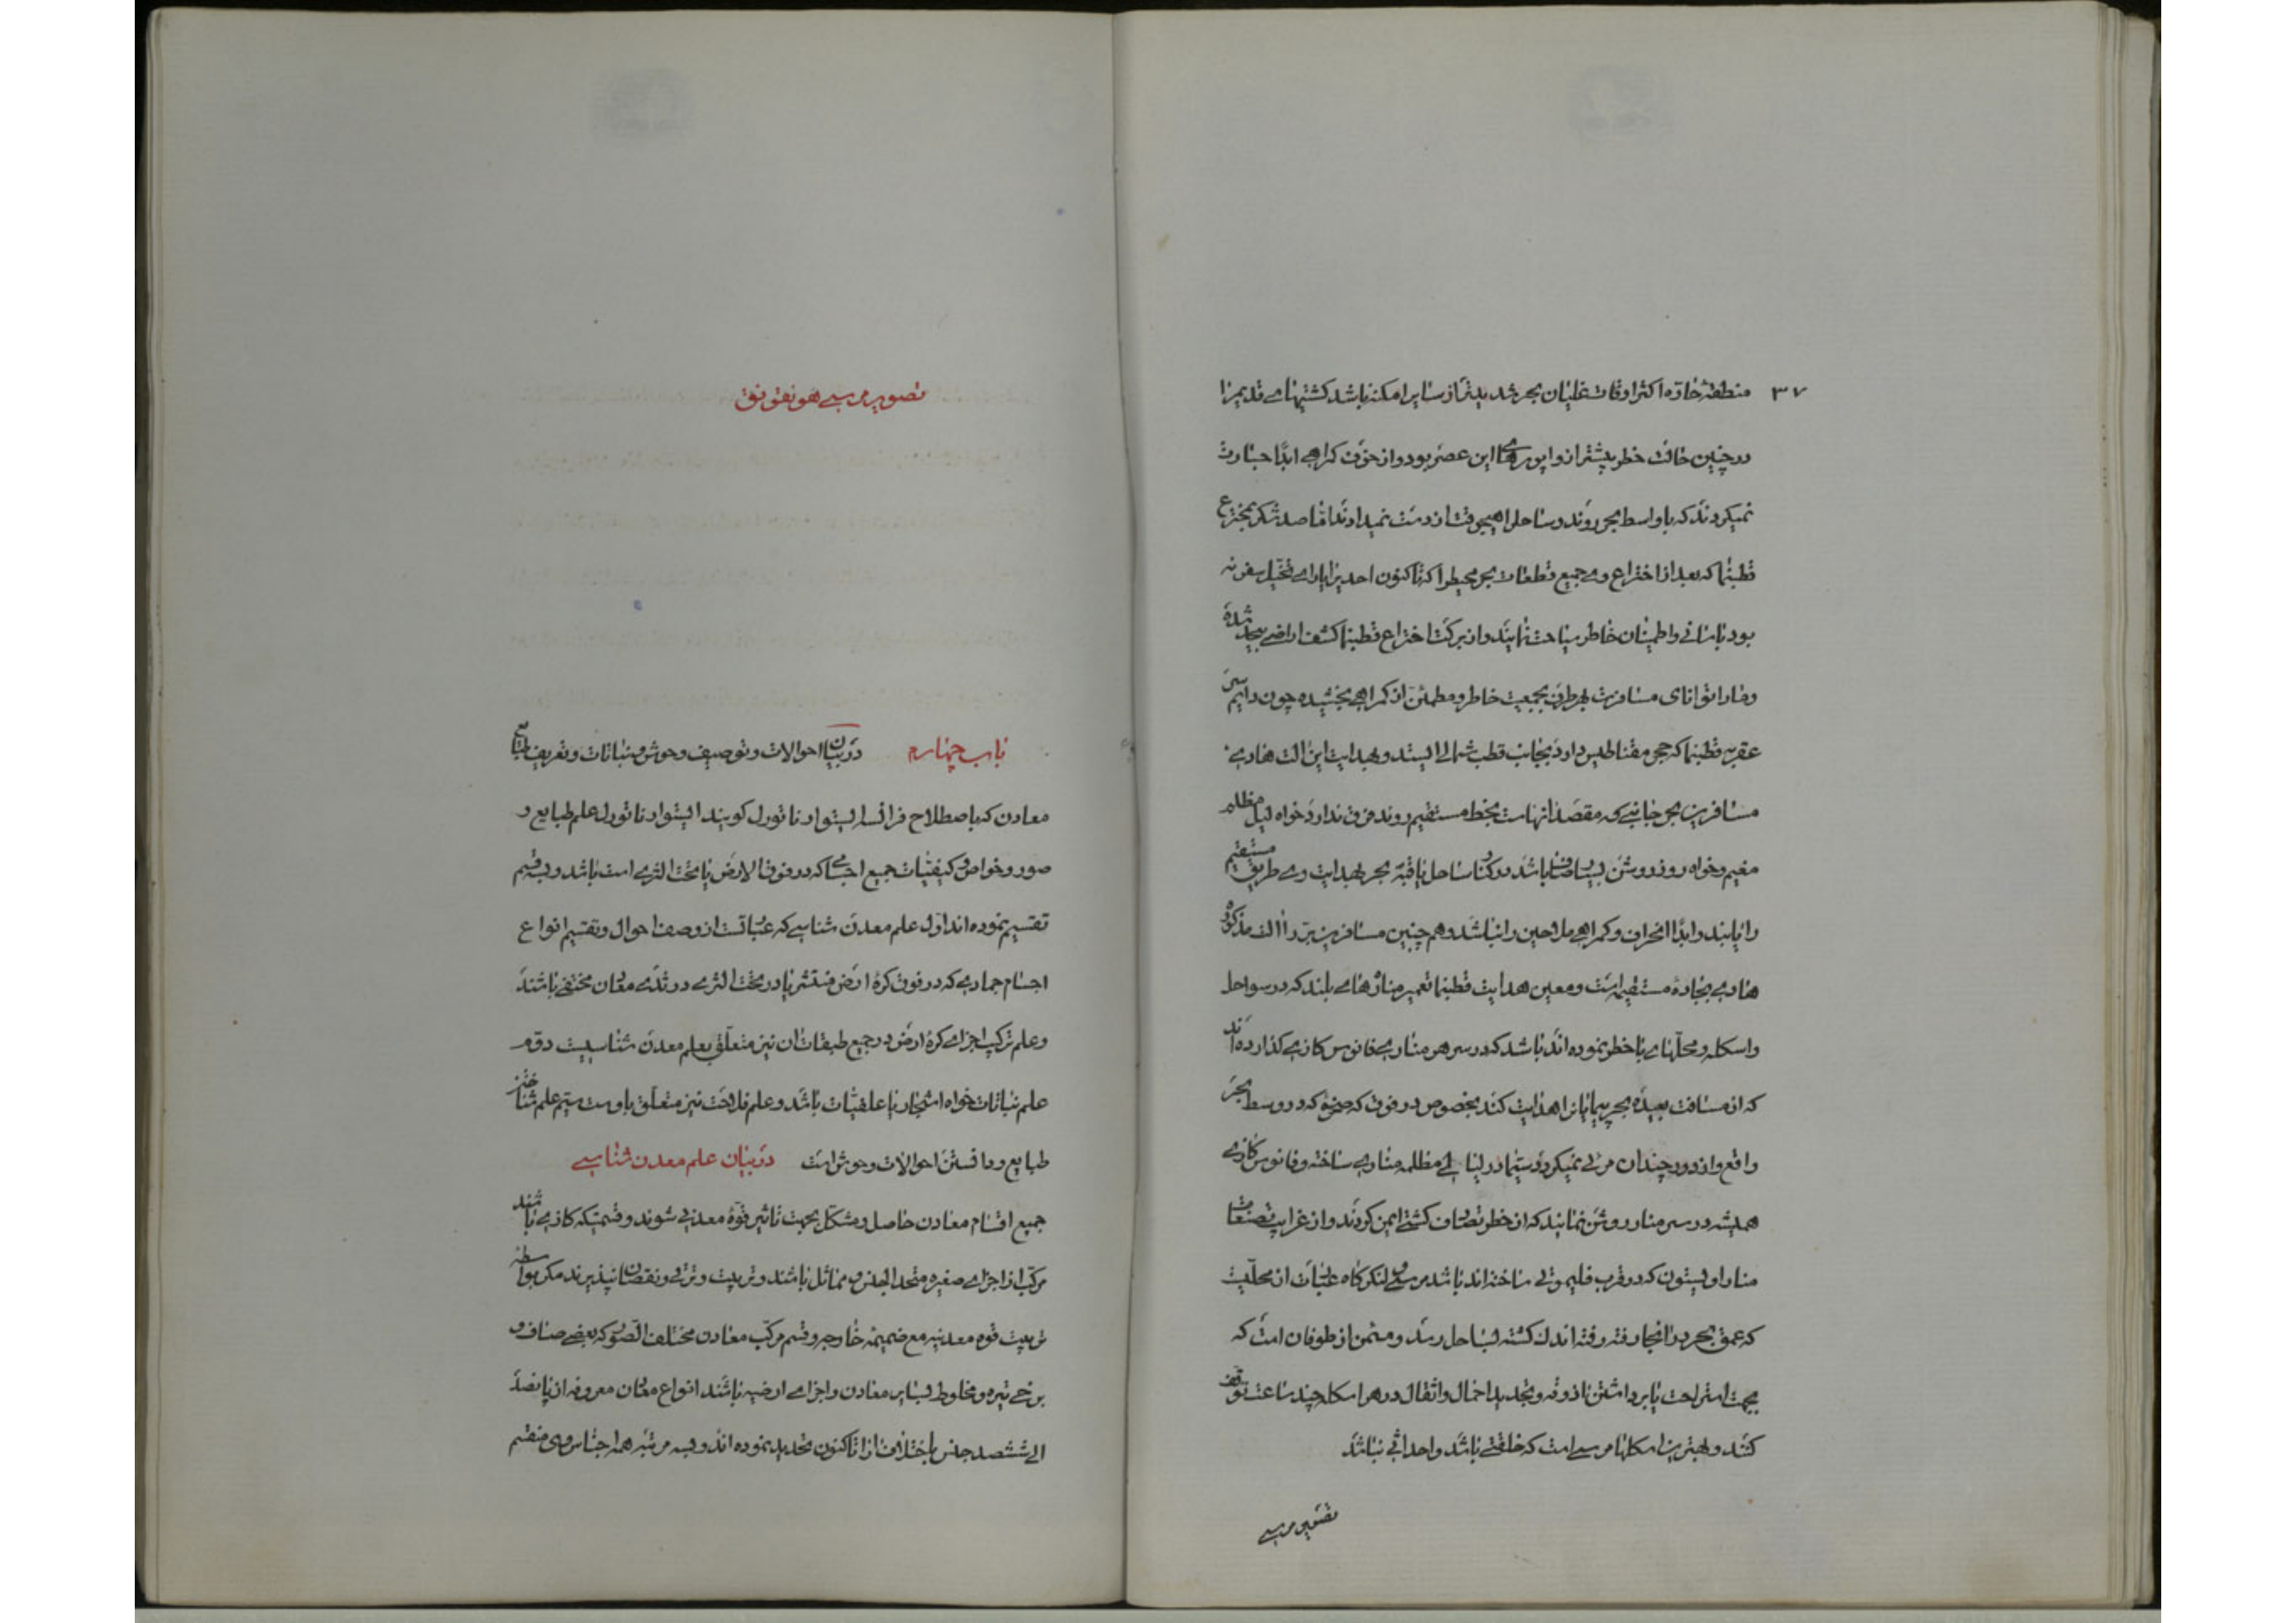 ۳۷
منطقهٔ حارّه اکثر اوقات غلیان بحر شدیدتر از سایر امکنه باشد کشتیهای قدیم را
در چنین حالت خطر بیشتر از واپورهای این عصر بود و از خوف کمراهی ابدًا جسارت
نمیکردند که باواسط بحر روند و ساحل را هیچوقت از دست نمیدادند امّا صد شکر بمخترع
قطبنما که بعد از اختراع وی جمیع قطعات بحر محیط را که تا کنون احدیرا یارای تخیّل سفر نه
بود باسانی و اطمینان خاطر سیاحت نمایند و از برکت اختراع قطبنما کشف اراضی بیحد شده
و مارا توانای مسافرت بهر طرف بجمعیت خاطر و مطمئن از کمراهی بخشیده چون دایم سر
عقربه قطبنما که حجر مقناطیس دارد بجانب قطب شمالی ایستد و بهدایت این الت هادی
مسافرین بهر جانبی که مقصد انهاست بخط مستقیم روند فرق ندارد خواه لیل مظلم
مغیم و خواه روز روشن بی باشد در کنار ساحل یا قبّه بحر بهدایت وی طریق مستقیم
را یابند و ابدًا انحراف و کمراهی ملاحین را نباشد و هم چنین مسافرین برّ را الت مذکور
هادی بجادهٔ مستقیم است و معین هدایت قطبنما تعمیر منارهای بلند که در سواحل
و اسکله و محلّهای با خطر نموده اند باشد که در سر هر مناری فانوس کازی کذارده اند
که از مسافت بعیده بحر پیمایانرا هدایت کند بخصوص در فوق که در وسط بحر
واقع و از دور چندان مرئی نمیکردد سیّما در لیالی مظلمه مناری ساخته و فانوس کازی
همیشه در سر منار روشن نمایند که از خطر تصادف کشتی ایمن کردند و از غرایب تصنعات
منار که در قرب ساخته اند باشد مرسی و لنکرکاه عبارت از محلّیت
که عمق بحر در انجا رفته رفته اندک کشته بساحل رسد و مئمن از طوفان است که
بجهت استراحت یا برداشتن اذوقه و تجدید احمال و اثقال در هر اسکله چند ساعت توقف
کنند و بهترین اسکلها مرسی است که خلقتی باشد و احداثی نباشد
تصویر مرسی
تصویر مرسی
باب چهارم در بیان احوالات و توصیف وحوش و نباتات و تعریف طبایع
معادن که باصطلاح فرانسا ایستوار ناتورل کویند ایستوار ناتورل علم طبایع و
صور و خواص و کیفیّات جمیع اجسامی که در فوق الارض یا تحت الثری است باشد و بسه قسم
تقسیم نموده اند اوّل علم معدن شناسی که عبارتست از وصف احوال و تقسیم انواع
اجسام جمادی که در فوق کرهٔ ارض منتشر یا در تحت الثری در معادن مختفی باشند
و علم ترکیب اجزای کرهٔ ارض و در جمیع طبقات ان نیز متعلّق بعلم معدن شناسیست دوّم
علم نباتات خواه اشجار یا علفیّات باشد و علم فلاحت نیز متعلّق باوست سیّم علم شناختن
طبایع و دانستن احوالات وحوش است در بیان علم معدن شناسی
جمیع اقسام معادن حاصل و مشکّل بجهت تاثیر قوّهٔ معدنی شوند و قسمیکه کازی باشند
مرکّب از اجزای صغیره متحد الجنس و مماثل باشند و تربیت و ترقی و نقصان نپذیرند مکر بواسطه
تربیت قوه معدنیه مع ضمیمه خارجه و قسم مرکّب معادن مختلف الصّور که بعضی صاف و
برخی تیره و مخلوط بسایر معادن و اجزای ارضیه باشند انواع معادن معروفه از پانصد
الی ششصد جنس باختلاف از تا کنون تحدید نموده اند و بسه مرتبه همه اجناس وی منقسم